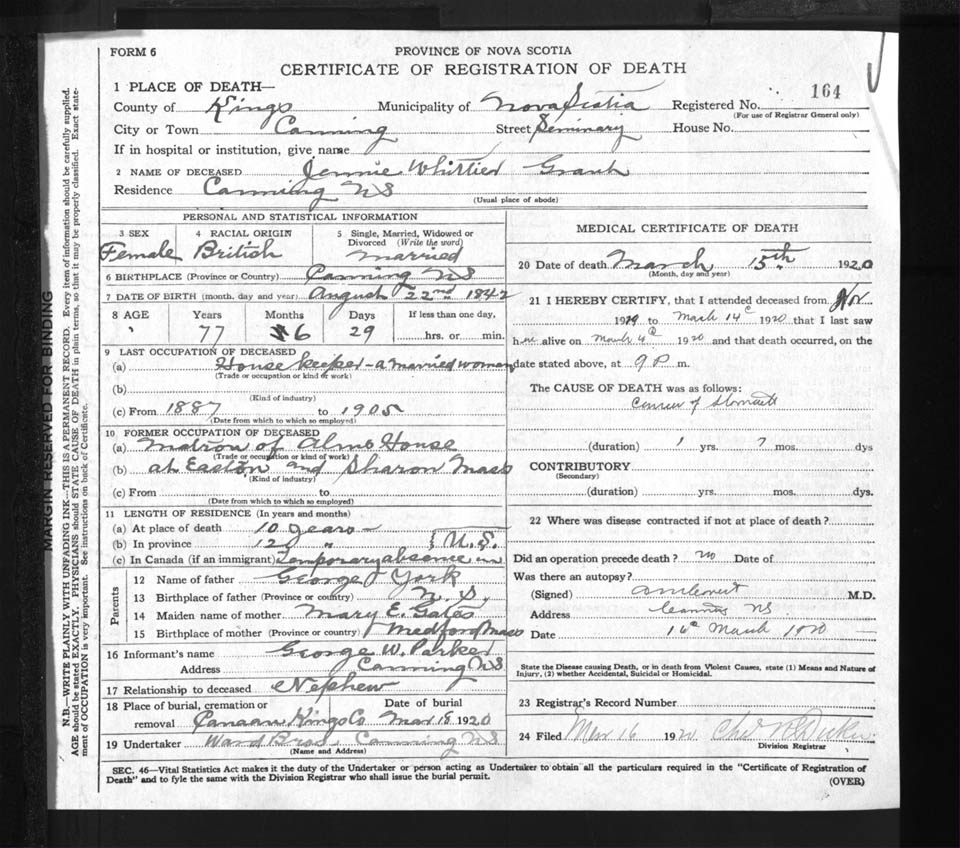 FORM 6
PROVINCE OF NOVA SCOTIA
CERTIFICATE OF REGISTRATION OF DEATH
1 PLACE OF DEATH—
164
County of Kings Municipality of Nova Scotia Registered No.
(For use of Registrar General only)
City or Town Canning Street Seminary House No.
If in hospital or institution, give name
2 NAME OF DECEASED Jennie Whittier Grant
Residence Canning NS
(Usual place of abode)
PERSONAL AND STATISTICAL INFORMATION
3 SEX 4 RACIAL ORIGIN 5 Single, Married, Widowed or Divorced (Write the word)
Female British married
6 BIRTHPLACE (Province or Country) Canning NS
7 DATE OF BIRTH (month, day and year) August 22nd 1842
8 AGE Years Months Days If less than one day,
77 6 29 hrs. or min.
9 LAST OCCUPATION OF DECEASED
(a) House keeper - a married woman
(Trade or occupation or kind of work)
(b)
(Kind of industry)
(c) From 1887 to 1905
(Date from which to which so employed)
10 FORMER OCCUPATION OF DECEASED
(a) Matron of Alms House
(Trade or occupation or kind of work)
(b) at Easton and Sharon Mass
(Kind of industry)
(c) From to
(Date from which to which so employed)
11 LENGTH OF RESIDENCE (In years and months)
(a) At place of death 10 years
(b) In province 12 " U.S.
(c) In Canada (if an immigrant) Temporary absence in
Parents
12 Name of father George York
13 Birthplace of father (Province or country) N.S.
14 Maiden name of mother Mary E. Gates
15 Birthplace of mother (Province or country) Medford Mass
16 Informant's name George W. Parker
Address Canning NS
17 Relationship to deceased Nephew
18 Place of burial, cremation or Date of burial
removal Canaan Kings Co Mar 18 1920
19 Undertaker Ward Bros Canning NS
(Name and Address)
MEDICAL CERTIFICATE OF DEATH
20 Date of death March 15th 1920
(Month, day and year)
21 I HEREBY CERTIFY, that I attended deceased from Nov
1919 to March 14 1920 that I last saw
her alive on March 4 1920 and that death occurred, on the
date stated above, at 9 P m.
The CAUSE OF DEATH was as follows:
Cancer of Stomach
(duration) 1 yrs. 7 mos. dys
CONTRIBUTORY
(Secondary)
(duration) yrs. mos. dys.
22 Where was disease contracted if not at place of death?
Did an operation precede death? no Date of
Was there an autopsy?
(Signed) M.D.
Address Canning NS
Date 16 March 1920
State the Disease causing Death, or in death from Violent Causes, state (1) Means and Nature of
Injury, (2) whether Accidental, Suicidal or Homicidal.
23 Registrar's Record Number
24 Filed Mar 16 1920
Division Registrar
SEC. 46—Vital Statistics Act makes it the duty of the Undertaker or person acting as Undertaker to obtain all the particulars required in the "Certificate of Registration of
Death" and to fyle the same with the Division Registrar who shall issue the burial permit.
(OVER)
MARGIN RESERVED FOR BINDING
N.B.—WRITE PLAINLY WITH UNFADING INK—THIS IS A PERMANENT RECORD. Every item of information should be carefully supplied.
AGE should be stated EXACTLY. PHYSICIANS should STATE CAUSE OF DEATH in plain terms, so that it may be properly classified. Exact state-
ment of OCCUPATION is very important. See instructions on back of Certificate.